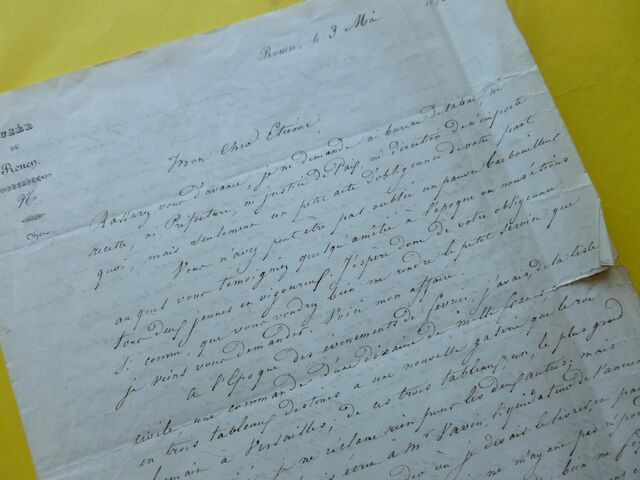 MUSÉE
DE
Rouen.
N.
Rouen, le 3 Mai
mon Cher Etienne,
Rassurez vous d'avance, je ne demande ni bureau de tabac, ni
recette, ni Préfecture, ni justice de Paix, ni direction de n'importe
quoi, mais seulement un petit acte d'obligeance de votre part
Vous n'avez peut être pas oublié un pauvre barbouilleur
au quel vous temoigniez quelqu'amitié à l'époque où nous étions
tous deux jeunes et vigoureux. J'espere donc de votre obligeance
si connue, que vous voudrez bien me rendre le petit service que
je viens vous demander. Voici mon affaire.
à l'Epoque des evenements de fevrier, j'avais, de la liste
civile une commande d'une dixaine de mille francs
en trois tableaux destinés a une nouvelle galerie que le roi
formait a Versailles; de ces trois tableaux un, le plus grand
je ne réclame rien pour les deux autres; mais
écrit a Mr liquidateur de l'ancienne
je devais le livrer,
ne m'ayant pas